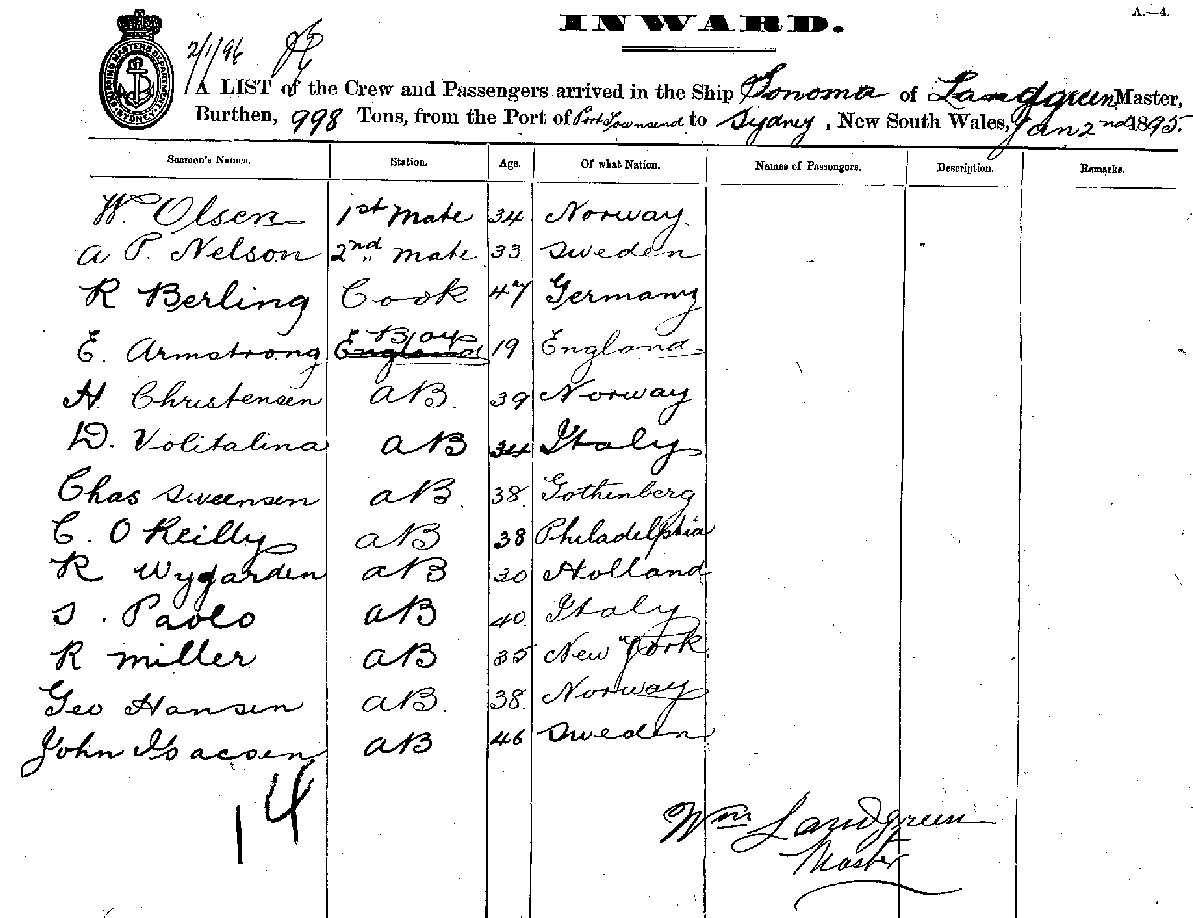 INWARD.
A.—4.
2/1/96
A LIST of the Crew and Passengers arrived in the Ship Sonoma of Landgreen, Master,
Burthen, 998 Tons, from the Port of Port Townsend to Sydney, New South Wales, Jan 2nd 1895.
Seamen's Names. Station. Age. Of what Nation. Names of Passengers. Description. Remarks.
Wm Olsen 1st mate 34 Norway
A P. Nelson 2nd mate 33 Sweden
R Berling Cook 47 Germany
E. Armstrong England Boy 19 England
H Christensen AB. 39 Norway
D. Volitalina AB 34 Italy
Chas Sweensen AB. 38. Gothenberg
C. O Reilly AB 38 Philadelphia
R Wygarden AB 30 Holland
S. Paolo AB 40 Italy
R Miller AB 35 New York
Geo Hansen AB. 38. Norway
John Isacsen AB 46 Sweden
14
Wm Landgreen
Master